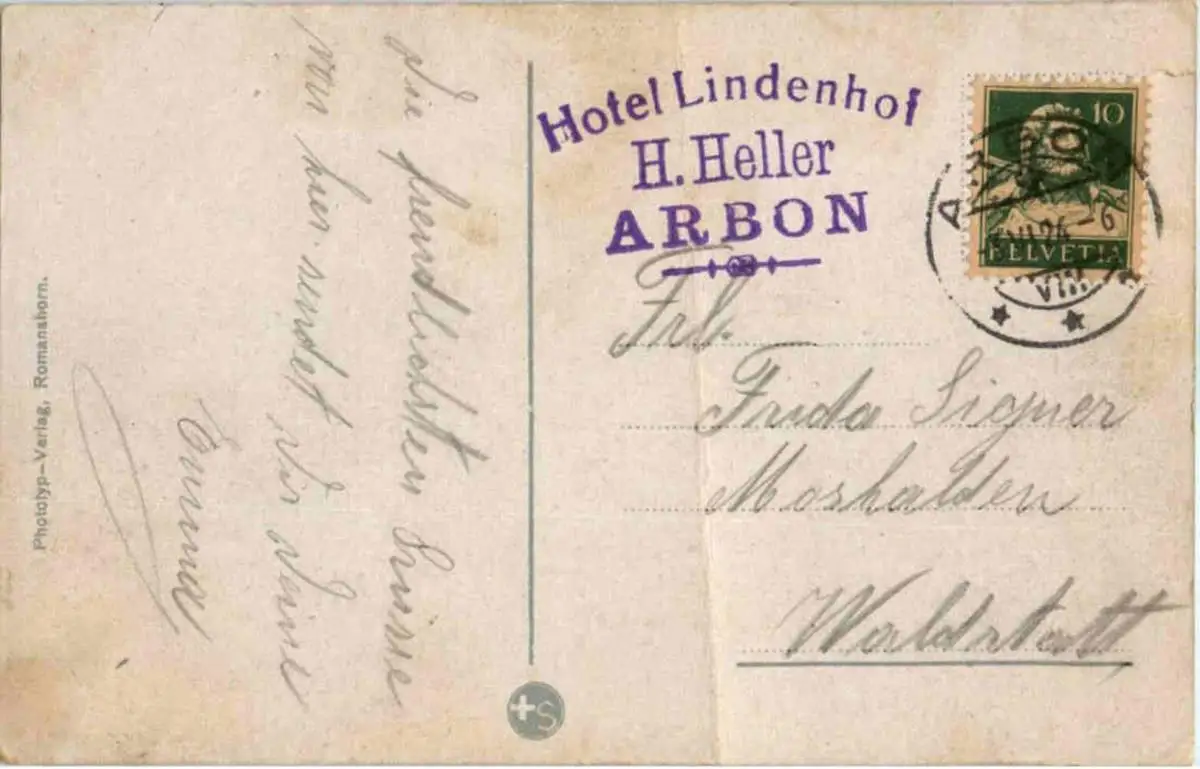 Die freundlichsten Grüsse
von hier sendet Dir Deine
Emma
Phototyp-Verlag, Romanshorn.
Hotel Lindenhof
H. Heller
ARBON
10
HELVETIA
ARBON
VI.24-6
VIII
Frl.
Frida Signer
Moshalden
Waldstatt
+S